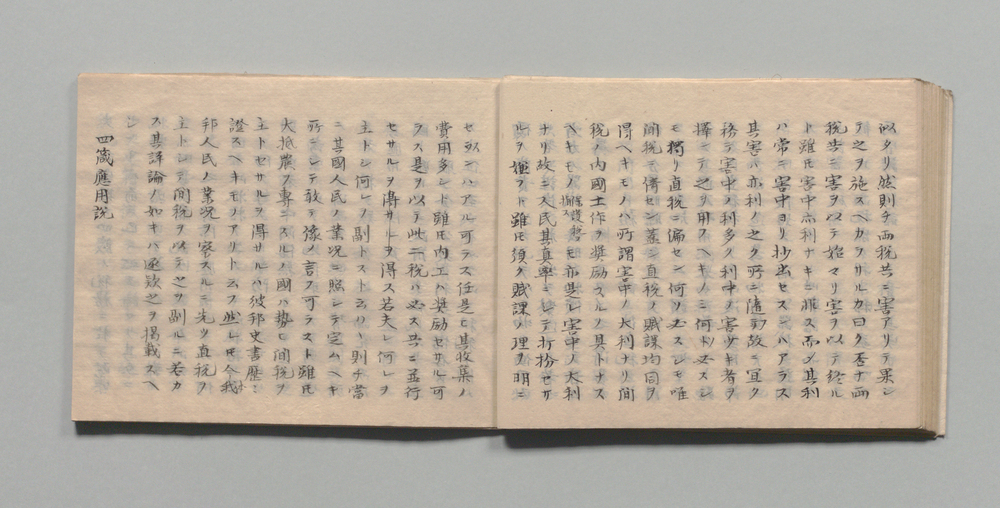 似タリ然則チ両税共ニ害アリテ果シ
テ之ヲ施スヘカラサルカ曰ク否ナ両
税共ニ害ヲ以テ始マリ害ヲ以テ終ル
ト雖モ害中亦利ナキニ非ス而シ其利
ハ常ニ害中ヨリ抄出セスンハアラス
其害ハ亦利ノ之ク所ニ随動ス故ニ宜ク
務テ害中ノ利多ク利中ノ害少キ者ヲ
擇ミテ之ヲ用フヘキノミ何ト必スシ
モ獨リ直税ニ偏セン何ソ必スシモ唯
間税ニ倚セン蓋シ直税ノ賦課均同ヲ
得ヘキモノハ所謂害中ノ大利ナリ間
税ノ内國土作ヲ奨励スルノ具トナス
ヘキモノ保護税ノ亦是レ害中ノ大利
ナリ故ニ人民其真率ニシテ打扮セサ
ルヲ嫌フト雖モ須ク賦課ノ理ヲ明ニ
セスンハアル可ラス任是ヒ其收集ノ
費用多シト雖モ内工ハ奨励セサル可
ラス是ヲ以テ此二税ハ必ス共ニ並行
セサルヲ得サルヲ得ス若夫レ何レヲ
主トシ何レノ副トスト云フハ則チ當
ニ其國人民ノ業況ニ照シテ定ムヘキ
所ニシテ敢テ豫メ言フ可ラスト雖モ
大抵農ヲ専ニスルノ國ハ勢ヒ間税ヲ
主トセサルヲ得サルハ彼邦史書歴ニ
證スヘキモノアリト云フ然レモ今我
邦人民ノ業況ヲ察スルニ先ツ直税ヲ
主トシテ間税ヲ以テ之ヲ副ルニ若カ
ス其詳論ノ如キハ逐欵之ヲ掲載スヘ
シ
四箴應用説